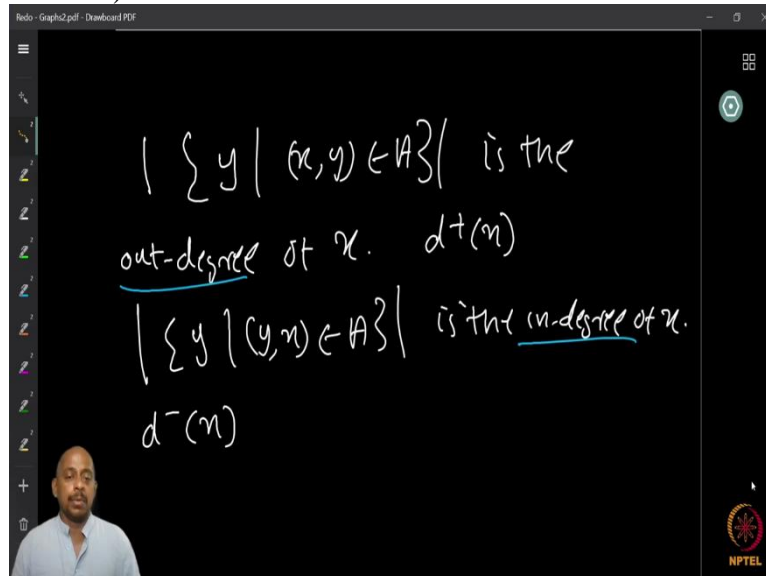 Redo - Graphs2.pdf - Drawboard PDF
| { y | (x, y) ∈ A} | is the
out-degree of x. d⁺(x)
| { y | (y, x) ∈ A} | is the in-degree of x.
d⁻(x)
NPTEL